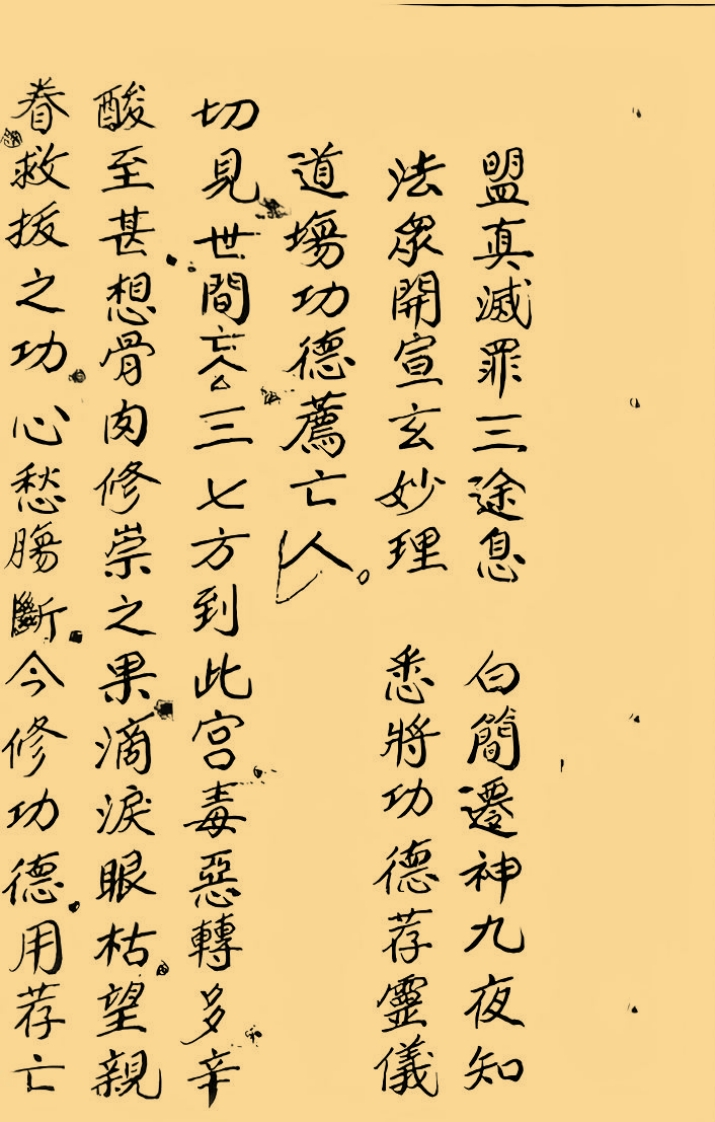 盟真滅罪三途息　白簡遷神九夜知
法眾開宣玄妙理　悉將功德荐靈儀
道場功德薦亡人。
切見世間亡人厶三七方到此宮毒惡轉多辛
酸至甚想骨肉修崇之果滴淚眼枯望親
眷救拔之功心愁腸斷今修功德用荐亡